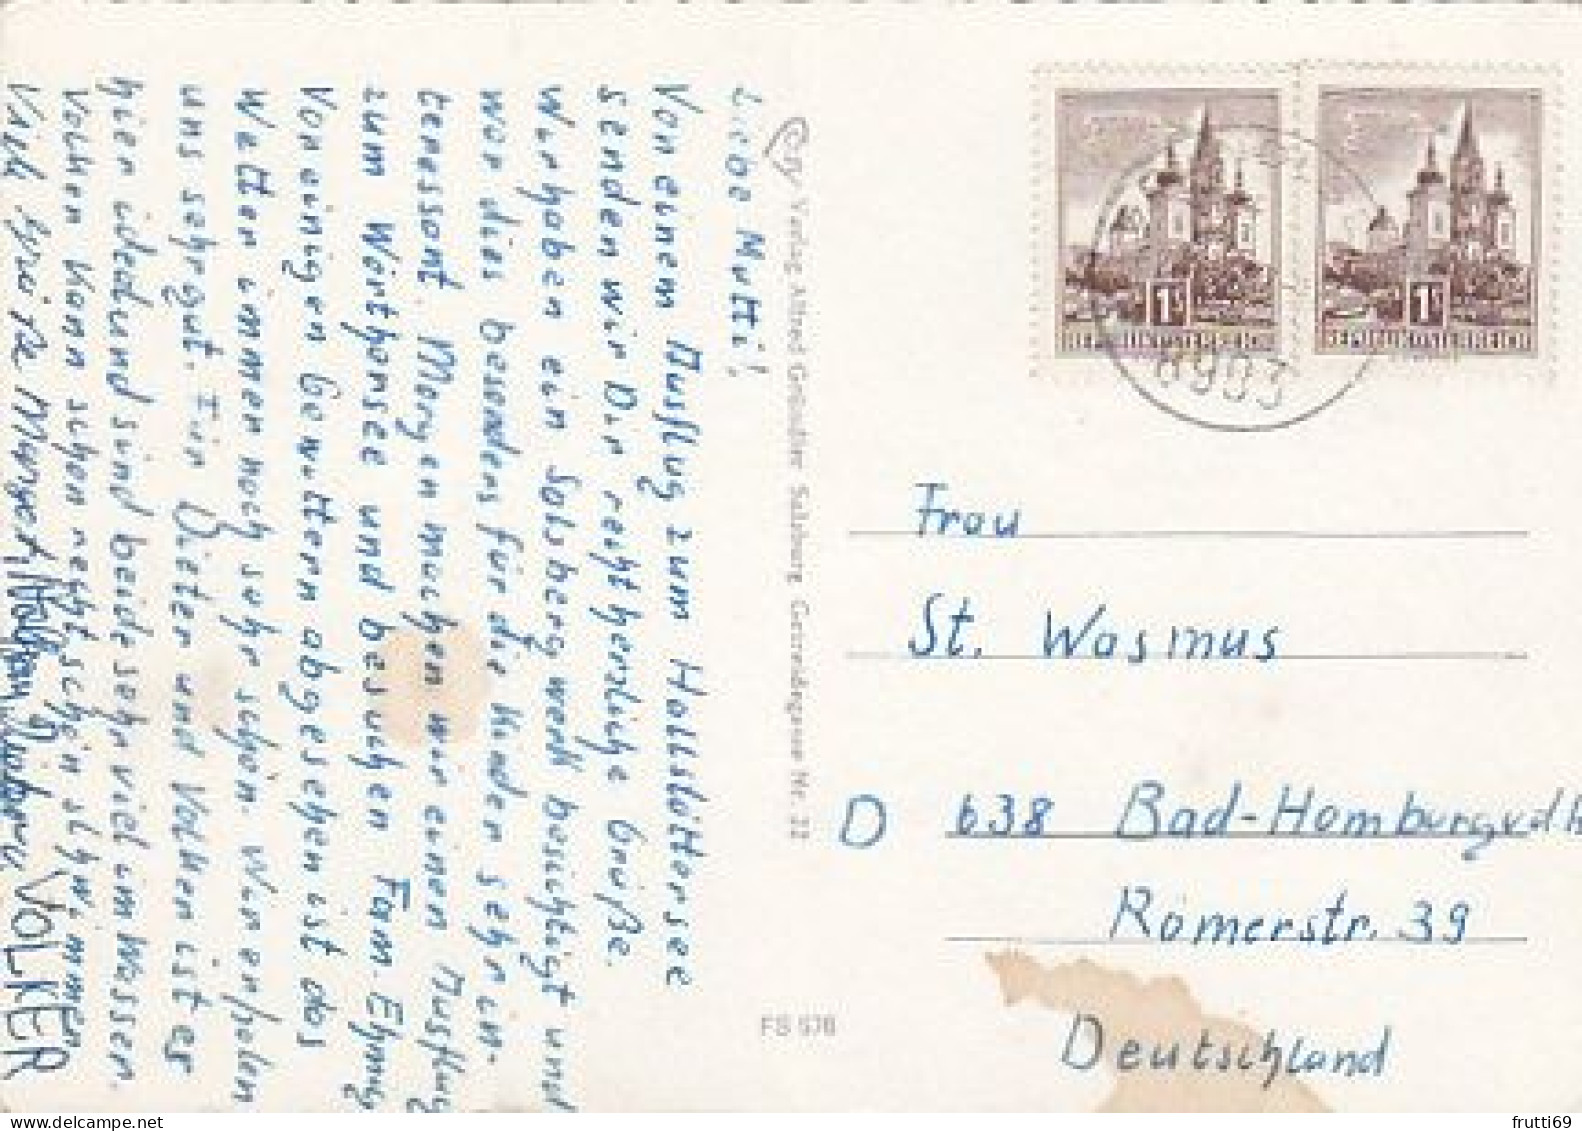 Liebe Mutti!
Von einem Ausflug zum Hallstättersee
senden wir Dir recht herzliche Grüße.
Wir haben ein Salzbergwerk besichtigt und
war dies besonders für die Kinder sehr in-
teressant. Morgen machen wir einen Ausflug
zum Wörthersee und besuchen Fam. Ehmig
Von einigen Gewittern abgesehen ist das
Wetter immer noch sehr schön. Wir erholen
uns sehr gut. Für Dieter und Volker ist es
hier ideal und sind beide sehr viel im Wasser.
Volker kann schon recht schön schwimmen
Viele Grüße
VOLKER
Verlag Alfred Gründler Salzburg Getreidegasse Nr. 22
FS 576
1S
REPUBLIK ÖSTERREICH
1S
REPUBLIK ÖSTERREICH
8993
Frau
St. Wasmus
D 638 Bad-Homburg v.d.h
Römerstr. 39
Deutschland
frutti69